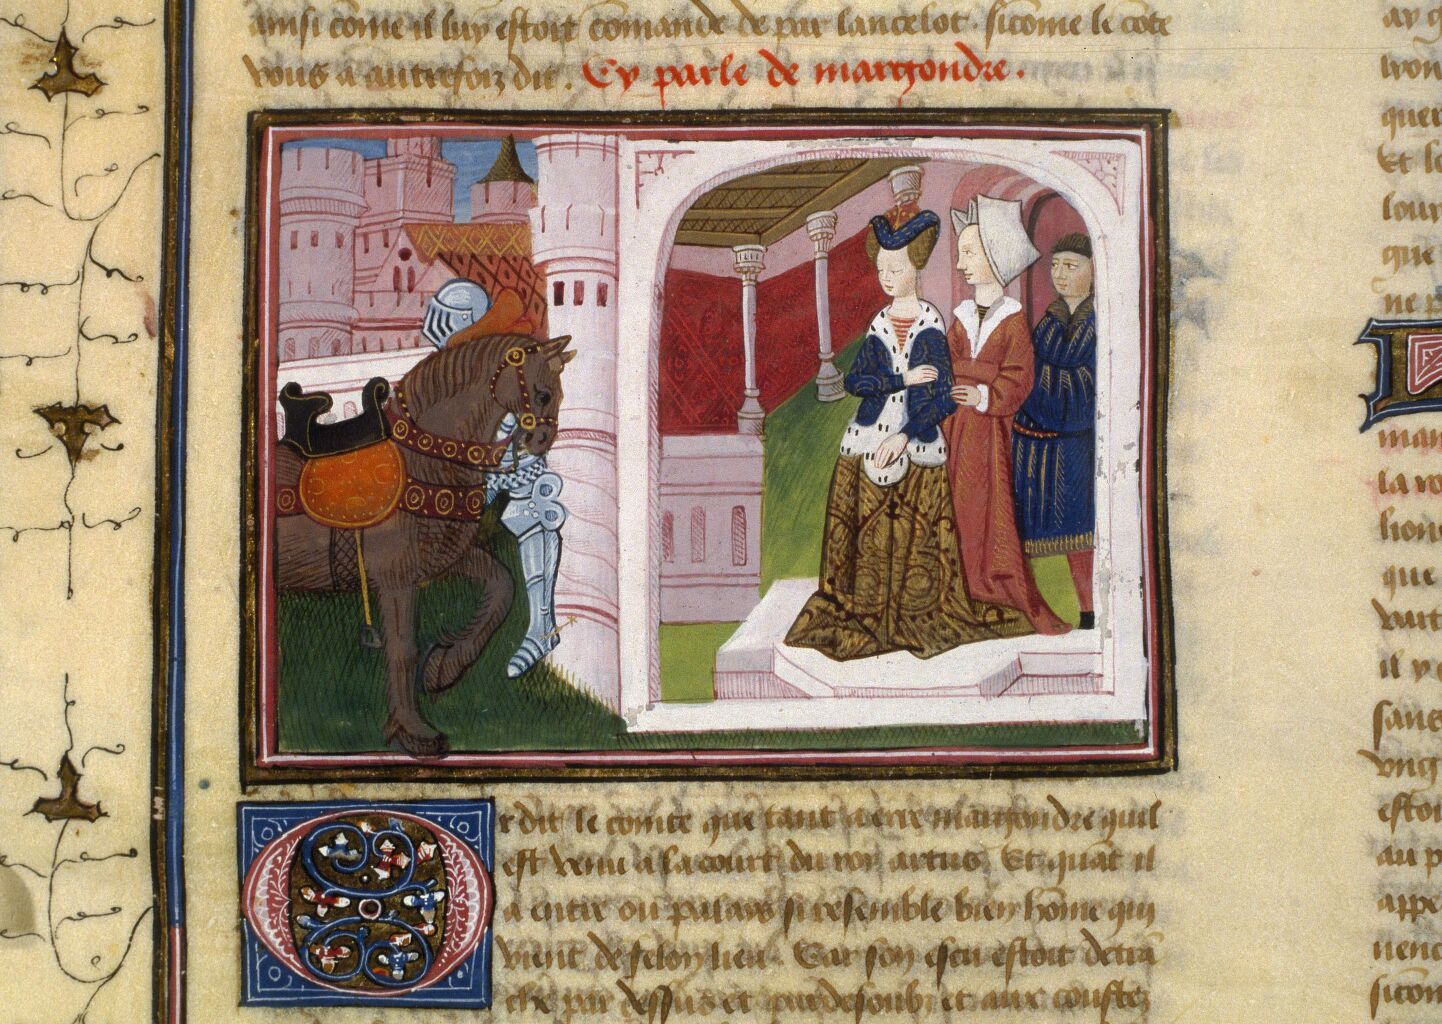 ainsi cōme il luy estoit cōmande de par lancelot. sicōme le cōte
vous a autresfoiz dit. Cy parle de margondre.
Or dit le comte que tant a erre margondre quil
est venu a la court du roy artus. Et quāt il
a entre ou palays si resemble bien hōme qui
vient de felon lieu. Car son escu estoit detrā
che par dessus et par desoubz et aux coustez
ay
que
Et
que
ne
man
la
que
il y
sans
ung
au